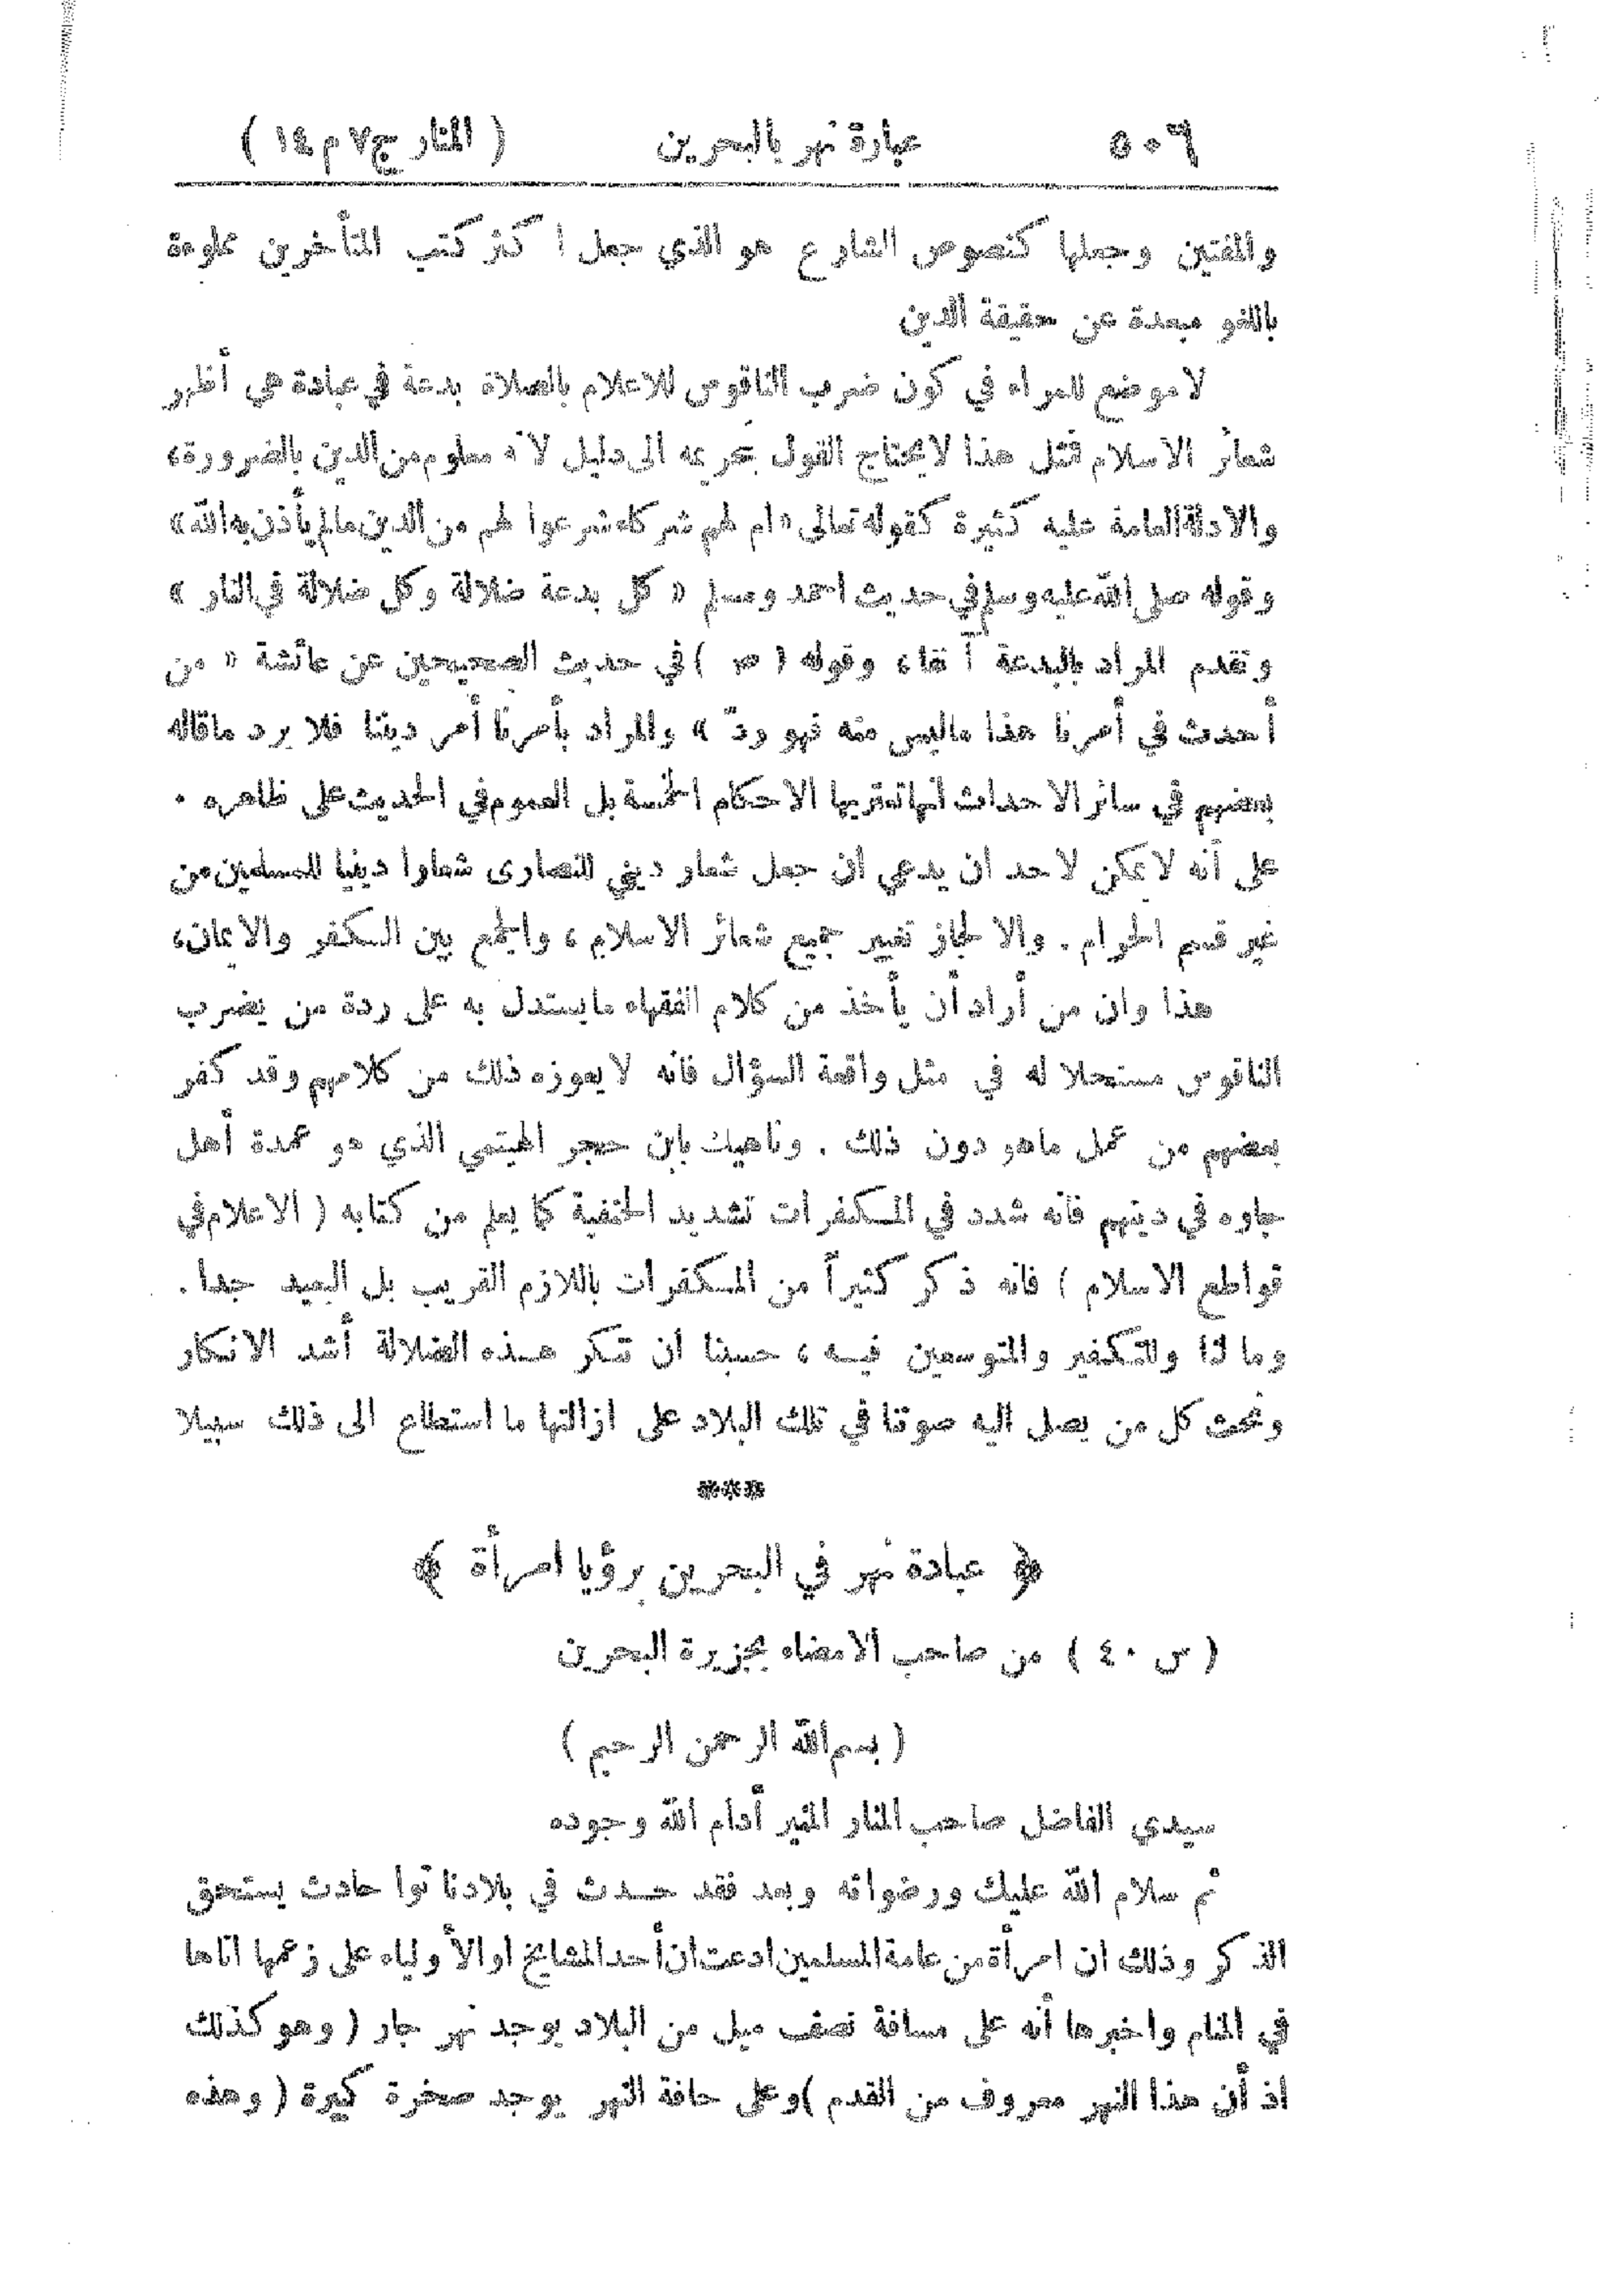 ٥٠٦ عبارة نهر بالبحرين ( المنار ج٧ م١٤ )
والمفتين وجعلها كنصوص الشارع هو الذي جعل اكثر كتب المتأخرين مملوءة
باللغو مبعدة عن حقيقة الدين
لا موضع للمراء في كون ضرب الناقوس للاعلام بالصلاة بدعة في عبادة هي أظهر
شعائر الاسلام فمثل هذا لا يحتاج القول بتحريمه الى دليل لانه معلوم من الدين بالضرورة،
والادلة العامة عليه كثيرة كقوله تعالى « ام لهم شركاء شرعوا لهم من الدين مالم يأذن به الله »
وقوله صلى الله عليه وسلم في حديث احمد ومسلم « كل بدعة ضلالة وكل ضلالة في النار »
وتقدم المراد بالبدعة آنفا، وقوله ( ص ) في حديث الصحيحين عن عائشة « من
أحدث في أمرنا هذا ماليس منه فهو ردّ » والمراد بأمرنا أمر ديننا فلا يرد ماقاله
بعضهم في سائر الاحداث انها تعتريها الاحكام الخمسة بل العموم في الحديث على ظاهره .
على أنه لا يمكن لاحد ان يدعي ان جعل شعار ديني للنصارى شعارا دينيا للمسلمين من
غير قسم الحرام . والا لجاز تغيير جميع شعائر الاسلام ، والجمع بين الكفر والايمان،
هذا وان من أراد أن يأخذ من كلام الفقهاء مايستدل به على ردة من يضرب
الناقوس مستحلا له في مثل واقعة السؤال فانه لا يعوزه ذلك من كلامهم وقد كفر
بعضهم من عمل ماهو دون ذلك . وناهيك بابن حجر الهيتمي الذي هو عمدة أهل
جاوه في دينهم فانه شدد في المكفرات تشديد الحنفية كما يعلم من كتابه ( الاعلام في
قواطع الاسلام ) فانه ذكر كثيراً من المكفرات باللازم القريب بل البعيد جدا .
وما لنا وللتكفير والمتوسعين فيه ، حسبنا ان ننكر هذه الضلالة أشد الانكار
ونحث كل من يصل اليه صوتنا في تلك البلاد على ازالتها ما استطاع الى ذلك سبيلا
***
﴿ عبادة نهر في البحرين برؤيا امرأة ﴾
( س ٤٠ ) من صاحب الامضاء بجزيرة البحرين
( بسم الله الرحمن الرحيم )
سيدي الفاضل صاحب المنار المنير أدام الله وجوده
ثم سلام الله عليك ورضوانه وبعد فقد حدث في بلادنا توا حادث يستحق
الذكر وذلك ان امرأة من عامة المسلمين ادعت ان أحد المشايخ او الأولياء على زعمها اتاها
في المنام واخبرها أنه على مسافة نصف ميل من البلاد يوجد نهر جار ( وهو كذلك
اذ أن هذا النهر معروف من القدم )وعلى حافة النهر يوجد صخرة كبيرة ( وهذه